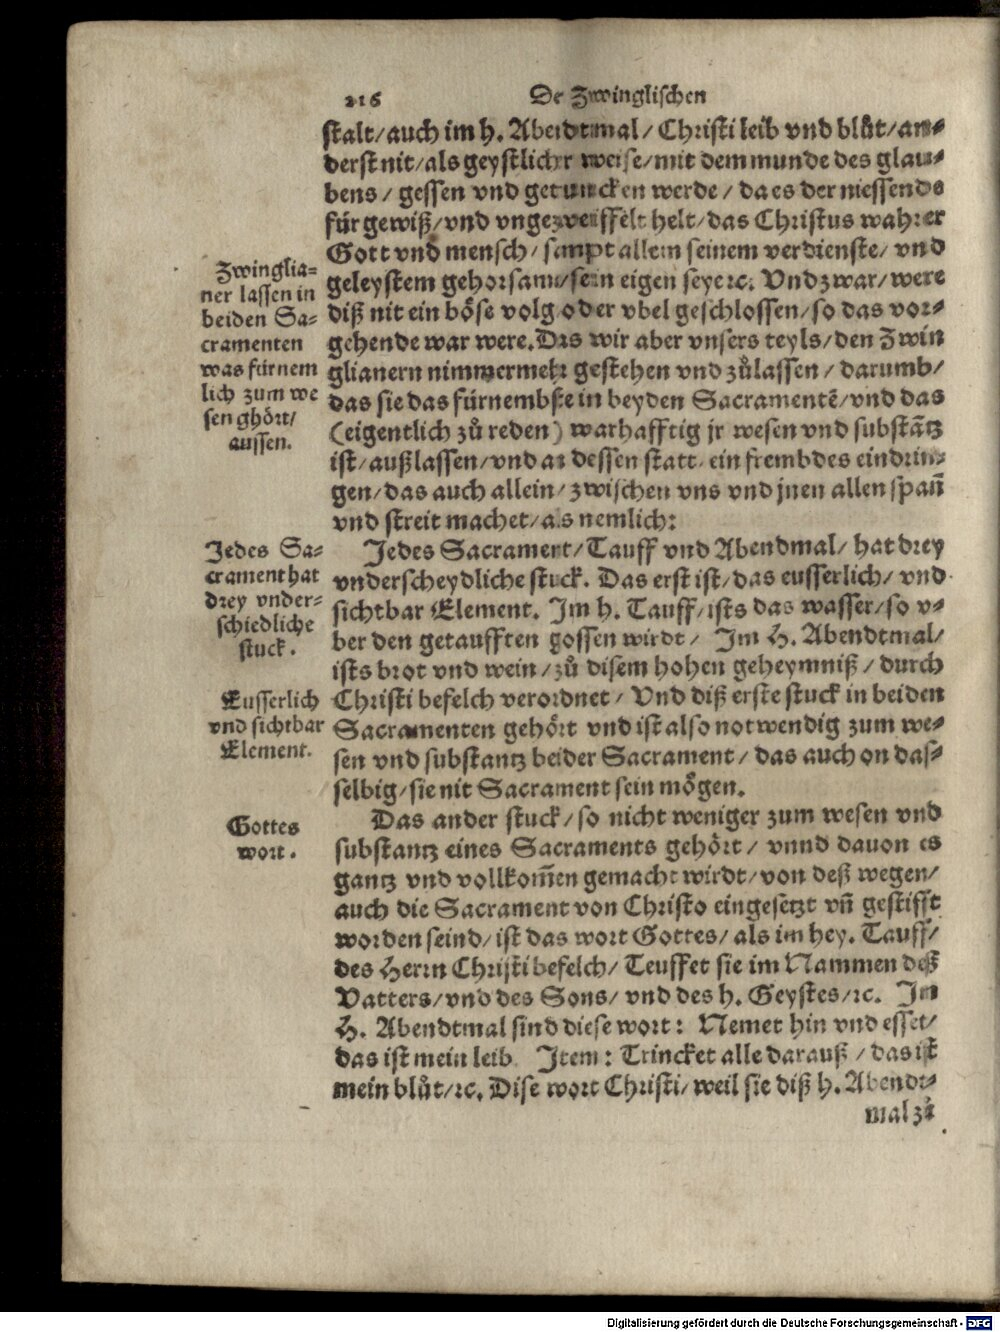 216 De Zwinglischen
stalt/auch im h. Abendtmal/ Christi leib vnd blůt/an-
derst nit/als geystlicher weise/mit dem munde des glau-
bens/ gessen vnd getruncken werde/ da es der niessende
für gewiß/vnd vngezweiffelt helt/das Christus wahrer
Gott vnd mensch/ sampt allem seinem verdienste/ vnd
geleystem gehorsam/sein eigen seye ꝛc. Vnd zwar/were
diß nit ein böse volg oder vbel geschlossen/so das vor-
gehende war were. Das wir aber vnsers teyls/den Zwin
glianern nimmermehr gestehen vnd zůlassen/ darumb/
das sie das fürnembste in beyden Sacramentē/vnd das
(eigentlich zů reden) warhafftig jr wesen vnd substātz
ist/außlassen/vnd an dessen statt/ein frembdes eindrin-
gen/das auch allein/zwischen vns vnd jnen allen spañ
vnd streit machet/als nemlich:
Zwinglia-
ner lassen in
beiden Sa-
cramenten
was fürnem
lich zum we
sen ghört/
aussen.
Jedes Sacrament/Tauff vnd Abendmal/ hat drey
vnderscheydliche stuck. Das erst ist/das eusserlich/ vnd
sichtbar Element. Im h. Tauff/ists das wasser/so v-
ber den getaufften gossen wirdt/ Im H. Abendtmal/
ists brot vnd wein/zů disem hohen geheymniß/ durch
Christi befelch verordnet/ Vnd diß erste stuck in beiden
Sacramenten gehört vnd ist also notwendig zum we-
sen vnd substantz beider Sacrament/ das auch on das-
selbig/sie nit Sacrament sein mögen.
Jedes Sa-
crament hat
drey vnder-
schiedliche
stuck.
Eusserlich
vnd sichtbar
Element.
Das ander stuck/so nicht weniger zum wesen vnd
substantz eines Sacraments gehört/ vnnd dauon es
gantz vnd vollkom̃en gemacht wirdt/von deß wegen/
auch die Sacrament von Christo eingesetzt vñ gestifft
worden seind/ist das wort Gottes/als im hey. Tauff/
des Herrn Christi befelch/ Teuffet sie im Nammen deß
Vatters/vnd des Sons/ vnd des h. Geystes/ꝛc. Im
H. Abendtmal sind diese wort: Nemet hin vnd esset/
das ist mein leib Item: Trincket alle darauß/das ist
mein blůt/ꝛc. Dise wort Christi/weil sie diß h. Abendt-
mal zů
Gottes
wort.
Digitalisierung gefördert durch die Deutsche Forschungsgemeinschaft - DFG